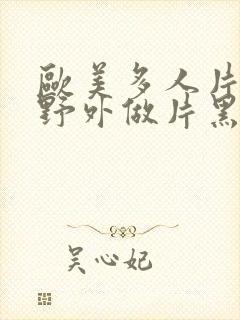 歐美多人片
野外做片黑
吴心妃